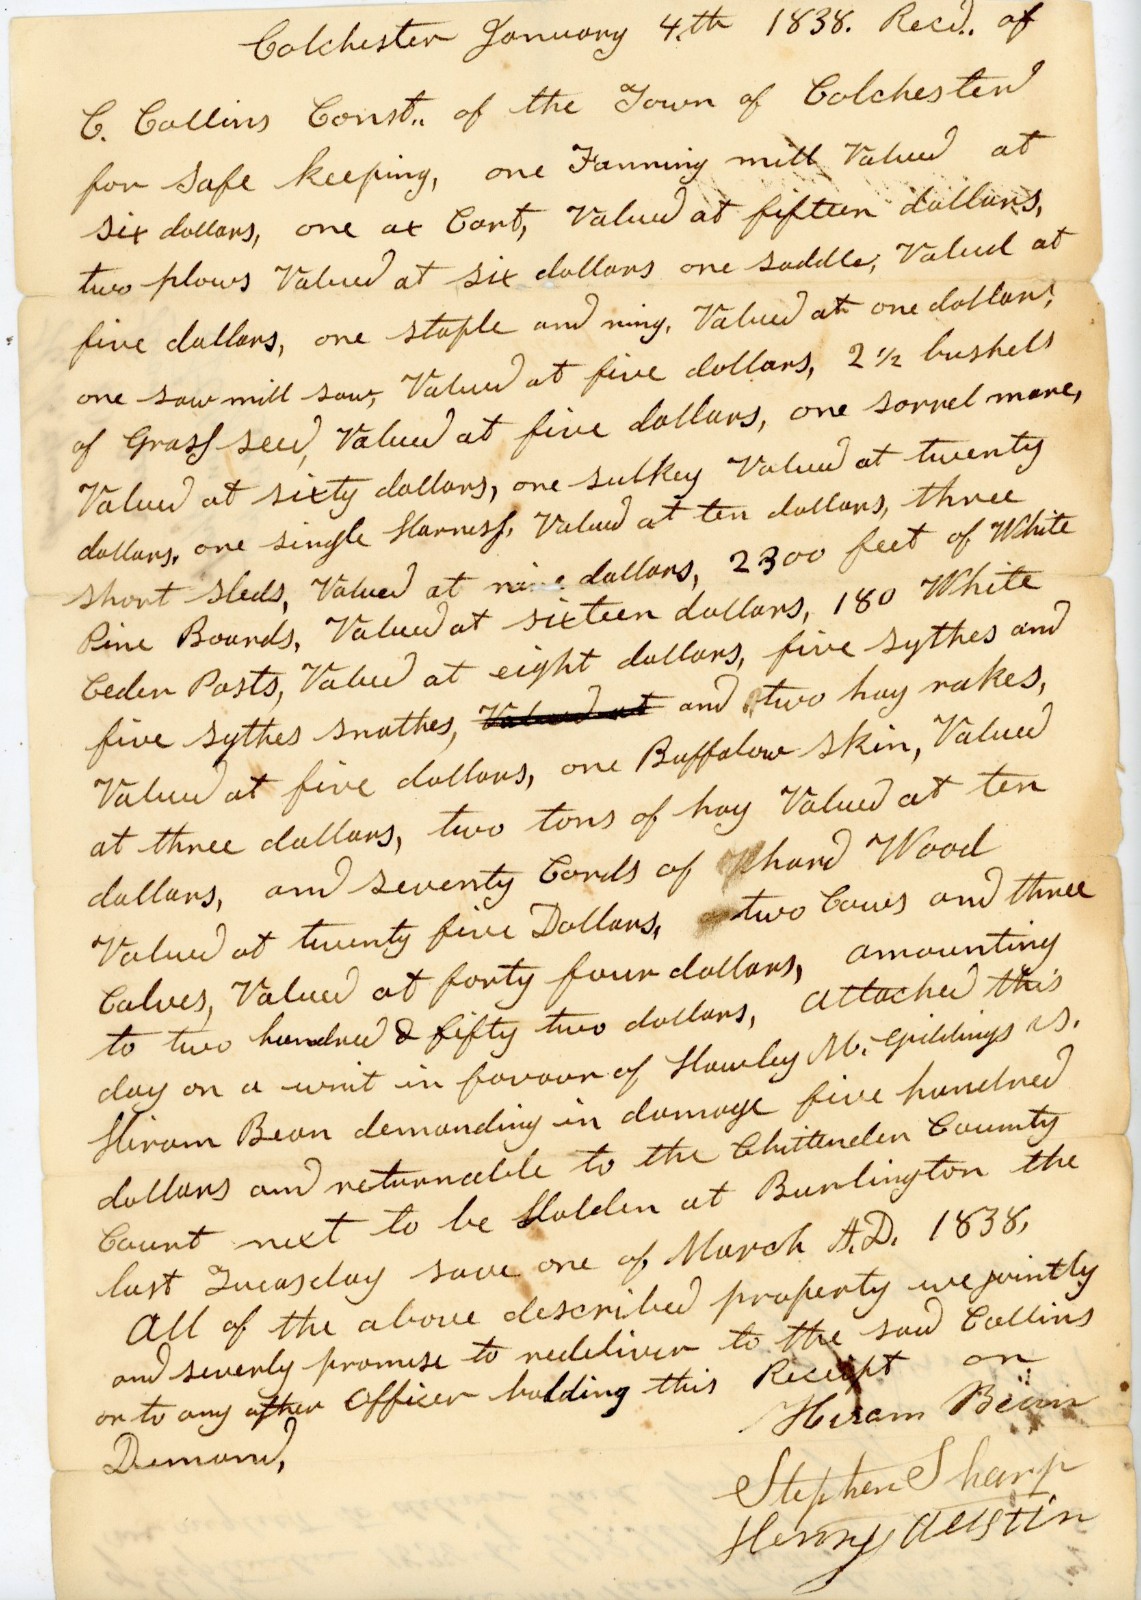 Colchester January 4.th 1838. Recd. of
C. Collins Const.. of the Town of Colchester
for safe keeping, one Fanning mill Valued at
six dollars, one ax Cart, Valued at fifteen dollars,
two plows Valued at six dollars one saddle, Valued at
five dollars, one staple and ring, Valued at one dollars,
one saw mill saw, Valued at five dollars, 2 1/2 bushels
of Grass seed, Valued at five dollars, one sorrel mare,
Valued at sixty dollars, one sulkey Valued at twenty
dollars, one single Harness, Valued at ten dollars, three
short sleds, Valued at nine dollars, 2300 feet of White
Pine Boards, Valued at sixteen dollars, 180 White
Ceder Posts, Valued at eight dollars, five sythes and
five sythes snathes, Valued at and two hay rakes,
Valued at five dollars, one Buffalow skin, Valued
at three dollars, two tons of hay Valued at ten
dollars, and seventy Cords of hard Wood
Valued at twenty five Dollars, two Cows and three
Calves, Valued at forty four dollars, amounting
to two hundred & fifty two dollars, attached this
day on a writ in favour of Hawley M. Giddings vs.
Hiram Bean demanding in damage five hundred
dollars and returnable to the Chittenden County
Court next to be Holden at Burlington the
last Tueasday save one of March A.D. 1838,
All of the above described property we jointly
and severly promise to redeliver to the said Collins
or to any other Officer holding this Receipt on
Demand,
Hiram Bean
Stephen Sharp
Henry Austin